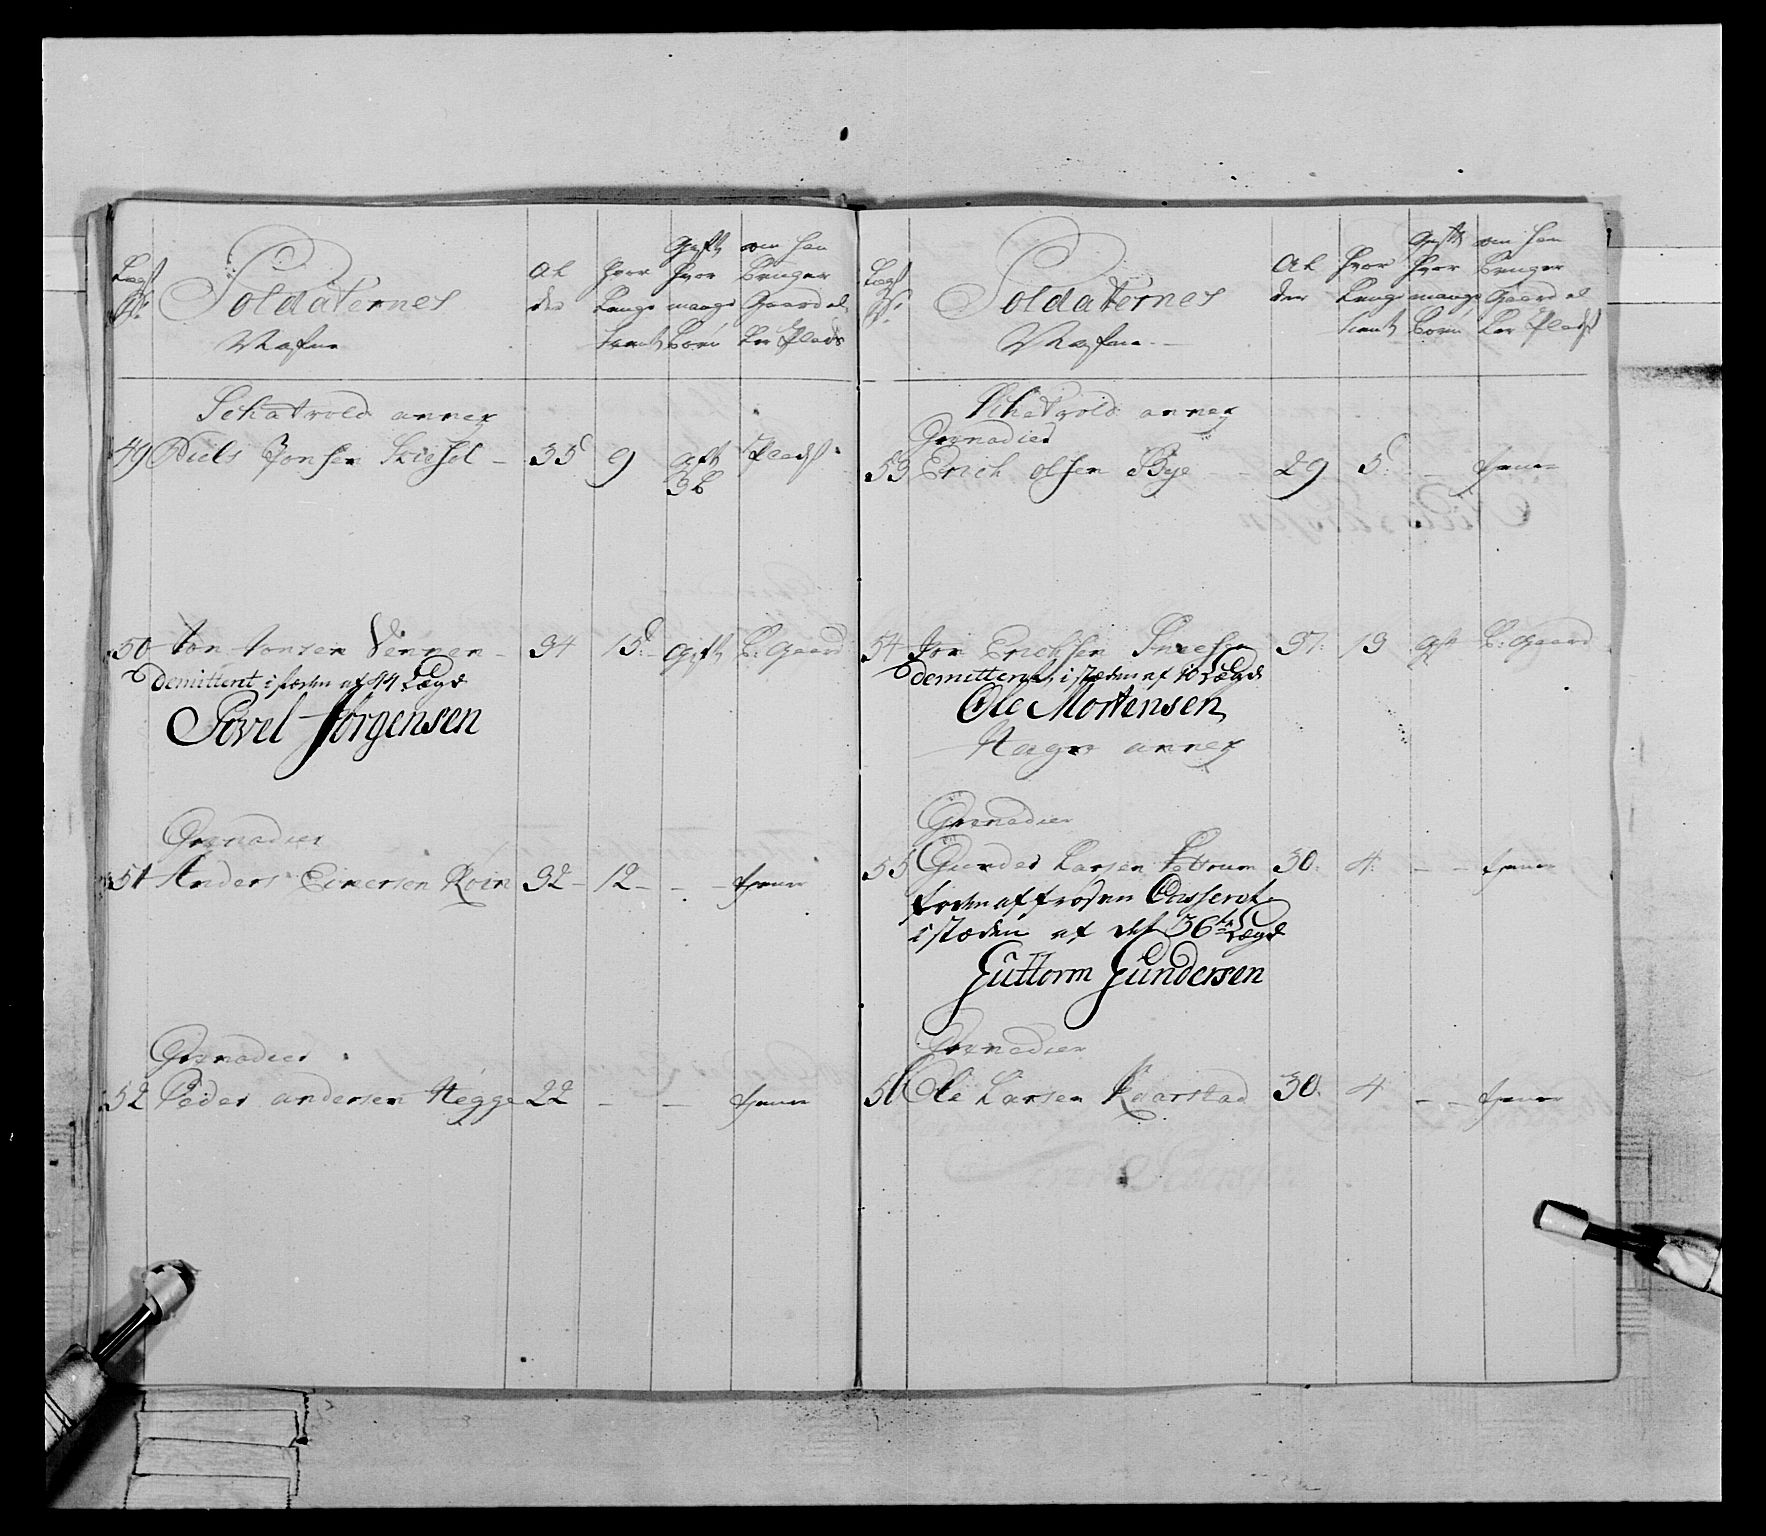 Lægd No: Soldaternes Nafne Alder hvor Lenge tient Gift hvor mange Børn om han Bruger Gaard eller Plads
Schatvold annex
49 Niels Jonsen 35 9 gift 3 b Plads
50 Jon Jonsen Vennen 34 15 Gift B: Gaard
Demittert i stæden af 44 Lægd
Povel Jørgensen
Grenadier
51 Anders Einersen Roin 32 12 - - tjener
Grenadier
52 Peder andersen Hegge 22 - - tjener
Lægd No: Soldaternes Nafne Alder hvor Lenge tient Gift hvor mange Børn om han Bruger Gaard eller Plads
Schatvold annex
Grenadier
53 Erich olsen Bye 29 5 - tjener
54 Jon Erichsen 37 13 gift B: Gaard
Demittert i stæden af 10 Lægd
Ole Mortensen
Hagn annex
Grenadier
55 Gunder Larsen 30 4 - - tjener
Casserot
i stæden af det 36te Lægd
Guttorm Gundersen
Grenadier
56 Ole Larsen Kaarstad 30 4 - - tjener